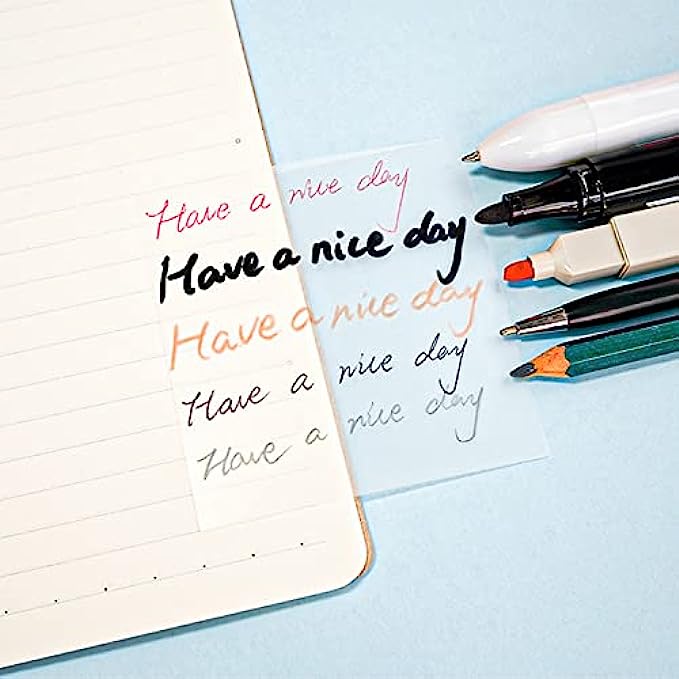 Have a nice day
Have a nice day
Have a nice day
Have a nice day
Have a nice day